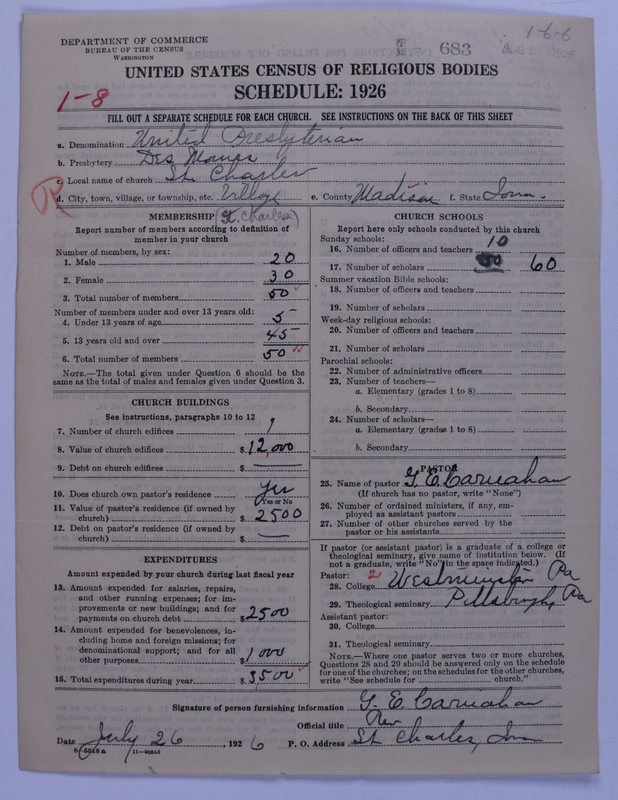 1-6-6
DEPARTMENT OF COMMERCE
BUREAU OF THE CENSUS
WASHINGTON
683
UNITED STATES CENSUS OF RELIGIOUS BODIES
SCHEDULE: 1926
1-8
FILL OUT A SEPARATE SCHEDULE FOR EACH CHURCH. SEE INSTRUCTIONS ON THE BACK OF THIS SHEET
a. Denomination United Presbyterian
b. Presbytery Des Moines
c. Local name of church St. Charles
d. City, town, village, or township, etc. Village e. County Madison f. State Iowa.
R
(St. Charles)
MEMBERSHIP
Report number of members according to definition of
member in your church
Number of members, by sex:
1. Male 20
2. Female 30
3. Total number of members 50
Number of members under and over 13 years old:
4. Under 13 years of age 5
5. 13 years old and over 45
6. Total number of members 50
NOTE.—The total given under Question 6 should be
same as the total of males and females given under Question 3.
CHURCH BUILDINGS
See instructions, paragraphs 10 to 12
7. Number of church edifices 1
8. Value of church edifices $ 12,000
9. Debt on church edifices $ —
10. Does church own pastor's residence Yes
Yes or No
11. Value of pastor's residence (if owned by
church) $ 2500
12. Debt on pastor's residence (if owned by
church) $ —
EXPENDITURES
Amount expended by your church during last fiscal year
13. Amount expended for salaries, repairs,
and other running expenses; for im-
provements or new buildings; and for
payments on church debt $ 2500
14. Amount expended for benevolences, in-
cluding home and foreign missions; for
denominational support; and for all
other purposes $ 1000
15. Total expenditures during year $ 3500
CHURCH SCHOOLS
Report here only schools conducted by this church
Sunday schools:
16. Number of officers and teachers 10
17. Number of scholars 60
Summer vacation Bible schools:
18. Number of officers and teachers
19. Number of scholars
Week-day religious schools:
20. Number of officers and teachers
21. Number of scholars
Parochial schools:
22. Number of administrative officers
23. Number of teachers—
a. Elementary (grades 1 to 8)
b. Secondary
24. Number of scholars—
a. Elementary (grades 1 to 8)
b. Secondary
PASTOR
25. Name of pastor G. E. Carnahan
(If church has no pastor, write "None")
26. Number of ordained ministers, if any, em-
ployed as assistant pastors
27. Number of other churches served by the
pastor or his assistants
If pastor (or assistant pastor) is a graduate of a college or
theological seminary, give name of institution below. (If
not a graduate, write "No" in the space indicated.)
Pastor: 2
28. College Westminster Pa
29. Theological seminary Pittsburgh, Pa
Assistant pastor:
30. College
31. Theological seminary
NOTE.—Where one pastor serves two or more churches,
Questions 28 and 29 should be answered only on the schedule
for one of the churches; on the schedules for the other churches,
write "See schedule for church."
Signature of person furnishing information G. E. Carnahan
Official title Rev
Date July 26, 1926 P. O. Address St Charles, Iowa
8-5519 a